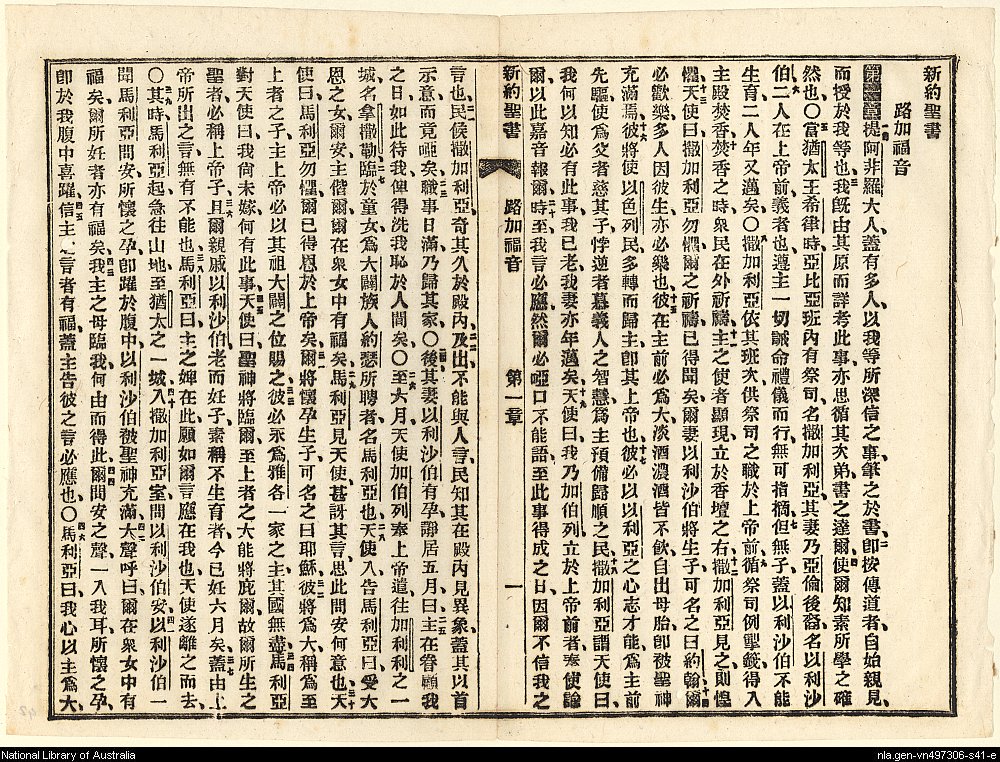 新約聖書
路加福音
提阿非羅大人蓋有多人以我等所深信之事筆之於書卽按傳道者自始親見
而授於我等也我旣由其原而詳考此事亦思循其次弟書之達爾使爾知素所學之確
然也〇當猶太王希律時亞比亞班內有祭司名撒加利亞其妻乃亞倫後裔名以利沙
伯二人在上帝前義者也遵主一切誡命禮儀而行無可指摘但無子蓋以利沙伯不能
生育二人年又邁矣〇撒加利亞依其班次供祭司之職於上帝前循祭司例掣籤得入
主殿焚香焚香之時衆民在外祈禱主之使者顯現立於香壇之右撒加利亞見之則惶
懼天使曰撒加利亞勿懼爾之祈禱已得聞矣爾妻以利沙伯將生子可名之曰約翰爾
必歡樂多人因彼生亦必樂也彼在主前必爲大淡酒濃酒皆不飲自出母胎卽被聖神
充滿焉彼將使以色列民多轉而歸主卽其上帝也彼必以以利亞之心志才能爲主前
先驅使爲父者慈其子悖逆者慕義人之智慧爲主預備歸順之民撒加利亞謂天使曰
我何以知必有此事我已老我妻亦年邁矣天使曰我乃加伯列立於上帝前者奉使諭
爾以此嘉音報爾時至我言必應然爾必啞口不能語至此事得成之日因爾不信我之
新約聖書 路加福音 第一章 一
言也民侯撒加利亞奇其久於殿內及出不能與人言民知其在殿內見異象蓋其以首
示意而竟啞矣職事日滿乃歸其家〇後其妻以利沙伯有孕諱居五月曰主在眷顧我
之日如此待我俾得洗我恥於人間矣〇至六月天使加伯列奉上帝遣往加利利之一
城名拿撒勒臨於童女爲大闢族人約瑟所聘者名馬利亞也天使入告馬利亞曰受大
恩之女爾安主偕爾爾在衆女中有福矣馬利亞見天使甚訝其言思此問安何意也天
使曰馬利亞勿懼爾已得恩於上帝矣爾將懷孕生子可名之曰耶穌彼將爲大稱爲至
上者之子主上帝必以其祖大闢之位賜之彼必永爲雅各一家之主其國無盡馬利亞
對天使曰我尙未嫁何有此事天使曰聖神將臨爾至上者之大能將庇爾故爾所生之
聖者必稱上帝子且爾親戚以利沙伯老而妊子素稱不生育者今已妊六月矣蓋由上
帝所出之言無有不能也馬利亞曰主之婢在此願如爾言應在我也天使遂離之而去
〇其時馬利亞起急往山地至猶太之一城入撒加利亞室問以利沙伯安以利沙伯一
聞馬利亞問安所懷之孕卽躍於腹中以利沙伯被聖神充滿大聲呼曰爾在衆女中有
福矣爾所妊者亦有福矣我主之母臨我何由而得此爾問安之聲一入我耳所懷之孕
卽於我腹中喜躍信主之言者有福蓋主告彼之言必應也〇馬利亞曰我心以主爲大
National Library of Australia
nla.gen-vn497306-s41-e